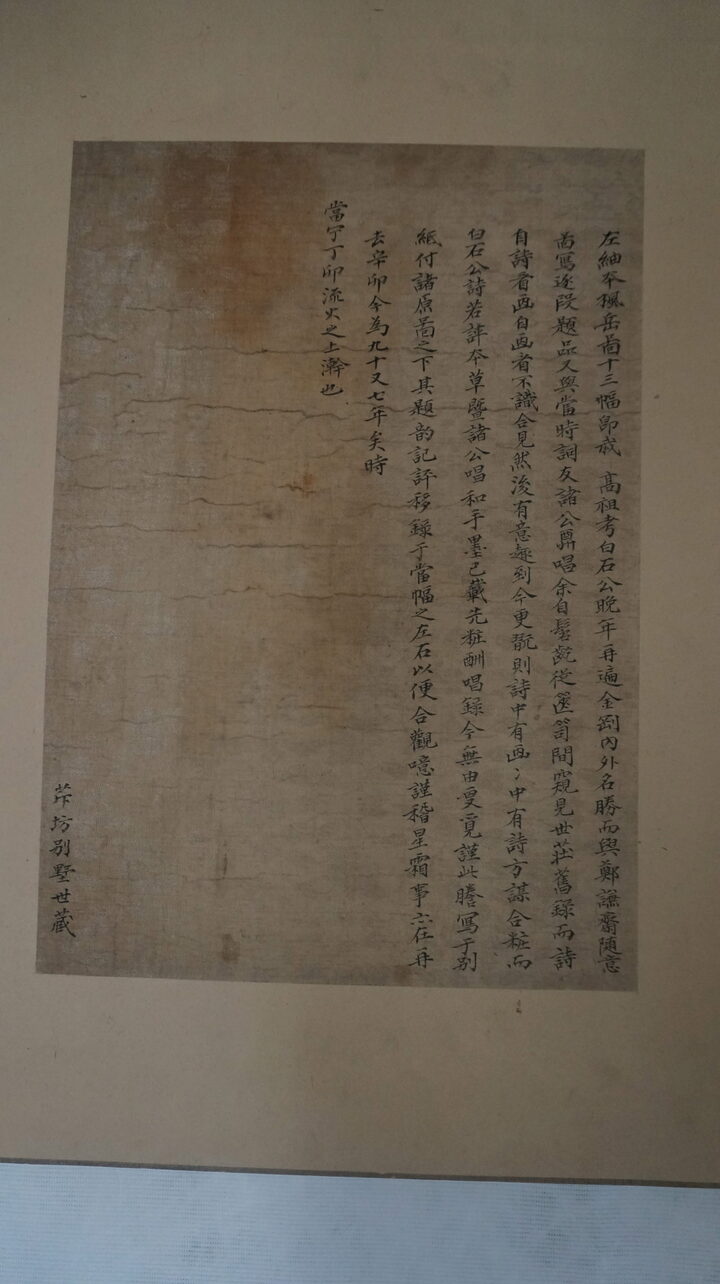 左紬本楓岳啚十三幅卽我 高祖考白石公晩年再遍金剛內外名勝而與鄭謙齋隨意
啚寫逐段題品又與當時詞友諸公賡唱余自髫齔從篋笥間窺見世莊舊錄而詩
自詩看画自画看不識合見然後有意趣到今更翫則詩中有画〻中有詩方謀合粧而
白石公詩若評本草曁諸公唱和手墨已藏先粧酬唱錄今無由更覓謹此謄寫于別
紙付諸原啚之下其題韵記評移錄于當幅之左右以便合觀噫謹稽星霜事亦在再
去辛卯今爲九十又七年矣時
當宁丁卯流火之上澣也
芹坊別墅世藏